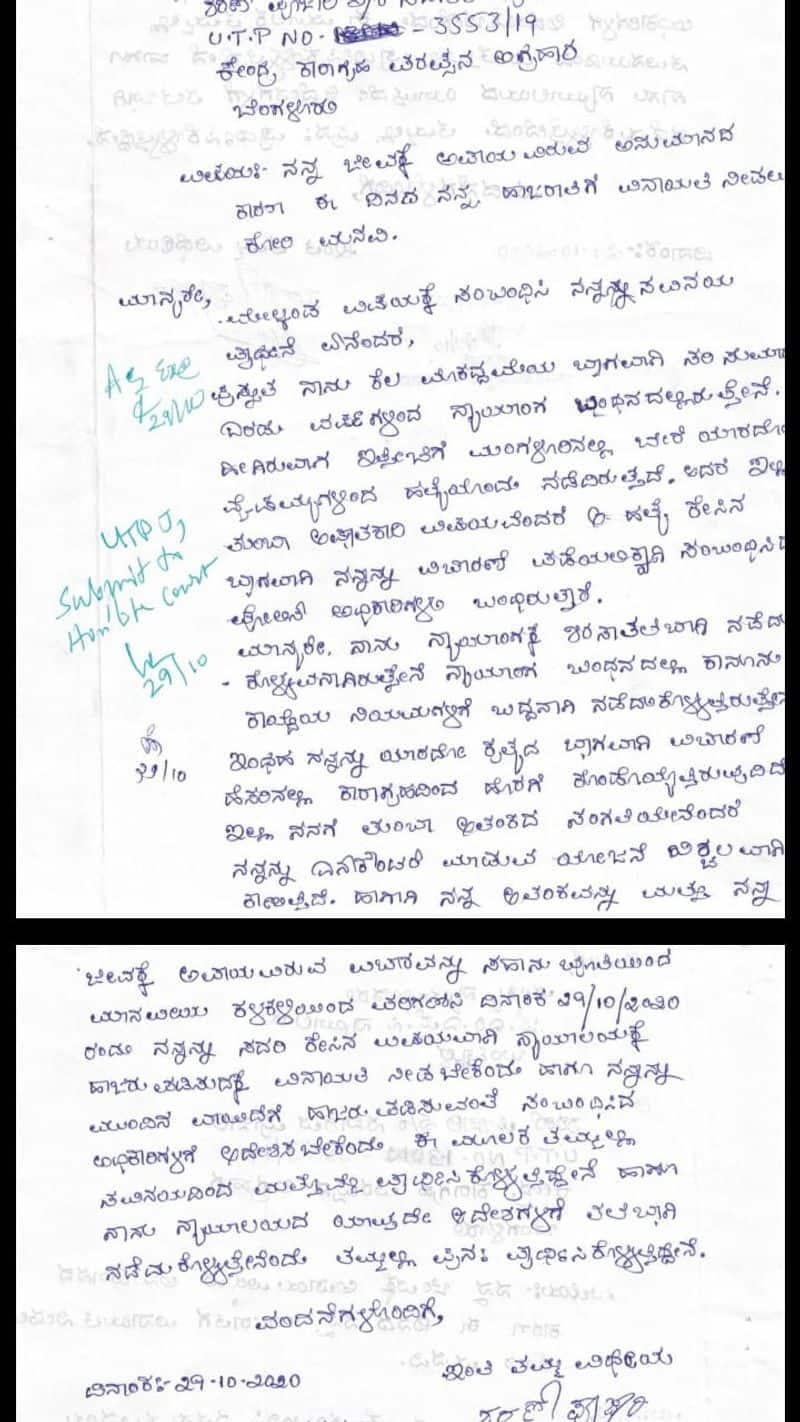 U.T.P NO. - 3553/19
ಕೇಂದ್ರ ಕಾರಾಗೃಹ ಪರಪ್ಪನ ಅಗ್ರಹಾರ
ಬೆಂಗಳೂರು
ವಿಷಯ:- ನನ್ನ ಜೀವಕ್ಕೆ ಅಪಾಯವಿರುವ ಅನುಮಾನದ
ಕಾರಣ ಈ ದಿನದ ನನ್ನ ಹಾಜರಾತಿಗೆ ವಿನಾಯತಿ ನೀಡಲು
ಕೋರಿ ಮನವಿ.
ಮಾನ್ಯರೇ,
ಮೇಲ್ಕಂಡ ವಿಷಯಕ್ಕೆ ಸಂಬಂಧಿಸಿ ನನ್ನನ್ನು ಸವಿನಯ
ಪ್ರಾರ್ಥನೆ ಏನೆಂದರೆ,
ಪ್ರಸ್ತುತ ನಾನು ಕೆಲ ಮೊಕದ್ದಮೆಯ ಭಾಗವಾಗಿ ಸರಿ ಸುಮಾರು
ಎರಡು ವರ್ಷಗಳಿಂದ ನ್ಯಾಯಾಂಗ ಬಂಧನದಲ್ಲಿರುತ್ತೇನೆ.
ಹೀಗಿರುವಾಗ ಇತ್ತೀಚೆಗೆ ಮಂಗಳೂರಿನಲ್ಲಿ ಬೇರೆ ಯಾರದೋ
ವೈಷಮ್ಯಗಳಿಂದ ಹತ್ಯೆಯೊಂದು ನಡೆದಿರುತ್ತದೆ. ಆದರೆ ಇಲ್ಲಿ
ತುಂಬಾ ಆಘಾತಕಾರಿ ವಿಷಯವೆಂದರೆ ಆ ಹತ್ಯೆ ಕೇಸಿನ
ಭಾಗವಾಗಿ ನನ್ನನ್ನು ವಿಚಾರಣೆ ಪಡೆಯಲಿಕ್ಕಾಗಿ ಸಂಬಂಧಿಸಿದ
ಪೋಲಿಸ್ ಅಧಿಕಾರಿಗಳು ಬಂದಿರುತ್ತಾರೆ.
ಮಾನ್ಯರೇ, ನಾನು ನ್ಯಾಯಾಂಗಕ್ಕೆ ಶಿರಸಾತಲೆಬಾಗಿ ನಡೆದು
- ಕೊಳ್ಳುವವನಾಗಿರುತ್ತೇನೆ ನ್ಯಾಯಾಂಗ ಬಂಧನದಲ್ಲಿ ಕಾನೂನು
ಕಾಯ್ದೆಯ ನಿಯಮಗಳಿಗೆ ಬದ್ದನಾಗಿ ನಡೆದುಕೊಳ್ಳುತ್ತಿರುತ್ತೇನೆ
ಇಂಥಹ ನನ್ನನ್ನು ಯಾರದೋ ಕೃತ್ಯದ ಭಾಗವಾಗಿ ವಿಚಾರಣೆ
ಹೆಸರಿನಲ್ಲಿ ಕಾರಾಗೃಹದಿಂದ ಹೊರಗೆ ಕೊಂಡೊಯ್ಯುತ್ತಿರುವುದಿದೆ
ಇಲ್ಲಿ ನನಗೆ ತುಂಬಾ ಆತಂಕದ ಸಂಗತಿಯೇನೆಂದರೆ
ನನ್ನನ್ನು ಎನ್‌ಕೌಂಟರ್ ಮಾಡುವ ಯೋಜನೆ ನಿಚ್ಚಲವಾಗಿ
ಕಾಣುತ್ತಿದೆ. ಹಾಗಾಗಿ ನನ್ನ ಆತಂಕವನ್ನು ಮತ್ತು ನನ್ನ
29/10
UTPJ,
Submit to
Hon'ble Court
29/10
29/10
ಜೀವಕ್ಕೆ ಅಪಾಯವಿರುವ ವಿಚಾರವನ್ನು ಸಹಾನುಭೂತಿಯಿಂದ
ಮಾನವೀಯ ಕಳಕಳಿಯಿಂದ ಪರಿಗಣಿಸಿ ದಿನಾಂಕ 29/10/2020
ರಂದು ನನ್ನನ್ನು ಸದರಿ ಕೇಸಿನ ವಿಷಯವಾಗಿ ನ್ಯಾಯಾಲಯಕ್ಕೆ
ಹಾಜರು ಪಡಿಸುದಕ್ಕೆ ವಿನಾಯತಿ ನೀಡಬೇಕೆಂದು ಹಾಗೂ ನನ್ನನ್ನು
ಮುಂದಿನ ವಾಯಿದೆಗೆ ಹಾಜರು ಪಡಿಸುವಂತೆ ಸಂಬಂಧಿಸಿದ
ಅಧಿಕಾರಿಗಳಿಗೆ ಆದೇಶಿಸಬೇಕೆಂದು ಈ ಮೂಲಕ ತಮ್ಮಲ್ಲಿ
ಸವಿನಯದಿಂದ ಮತ್ತೊಮ್ಮೆ ಪ್ರಾರ್ಥಿಸಿಕೊಳ್ಳುತ್ತಿದ್ದೇನೆ ಹಾಗೂ
ನಾನು ನ್ಯಾಯಾಲಯದ ಯಾವುದೇ ಆದೇಶಗಳಿಗೆ ತಲೆಬಾಗಿ
ನಡೆದುಕೊಳ್ಳುತ್ತೇನೆಂದು ತಮ್ಮಲ್ಲಿ ಪುನಃ ಪ್ರಾರ್ಥಿಸಿಕೊಳ್ಳುತ್ತಿದ್ದೇನೆ.
ವಂದನೆಗಳೊಂದಿಗೆ,
ಇಂತಿ ತಮ್ಮ ವಿಧೇಯ
ದಿನಾಂಕ:- 29-10-2020